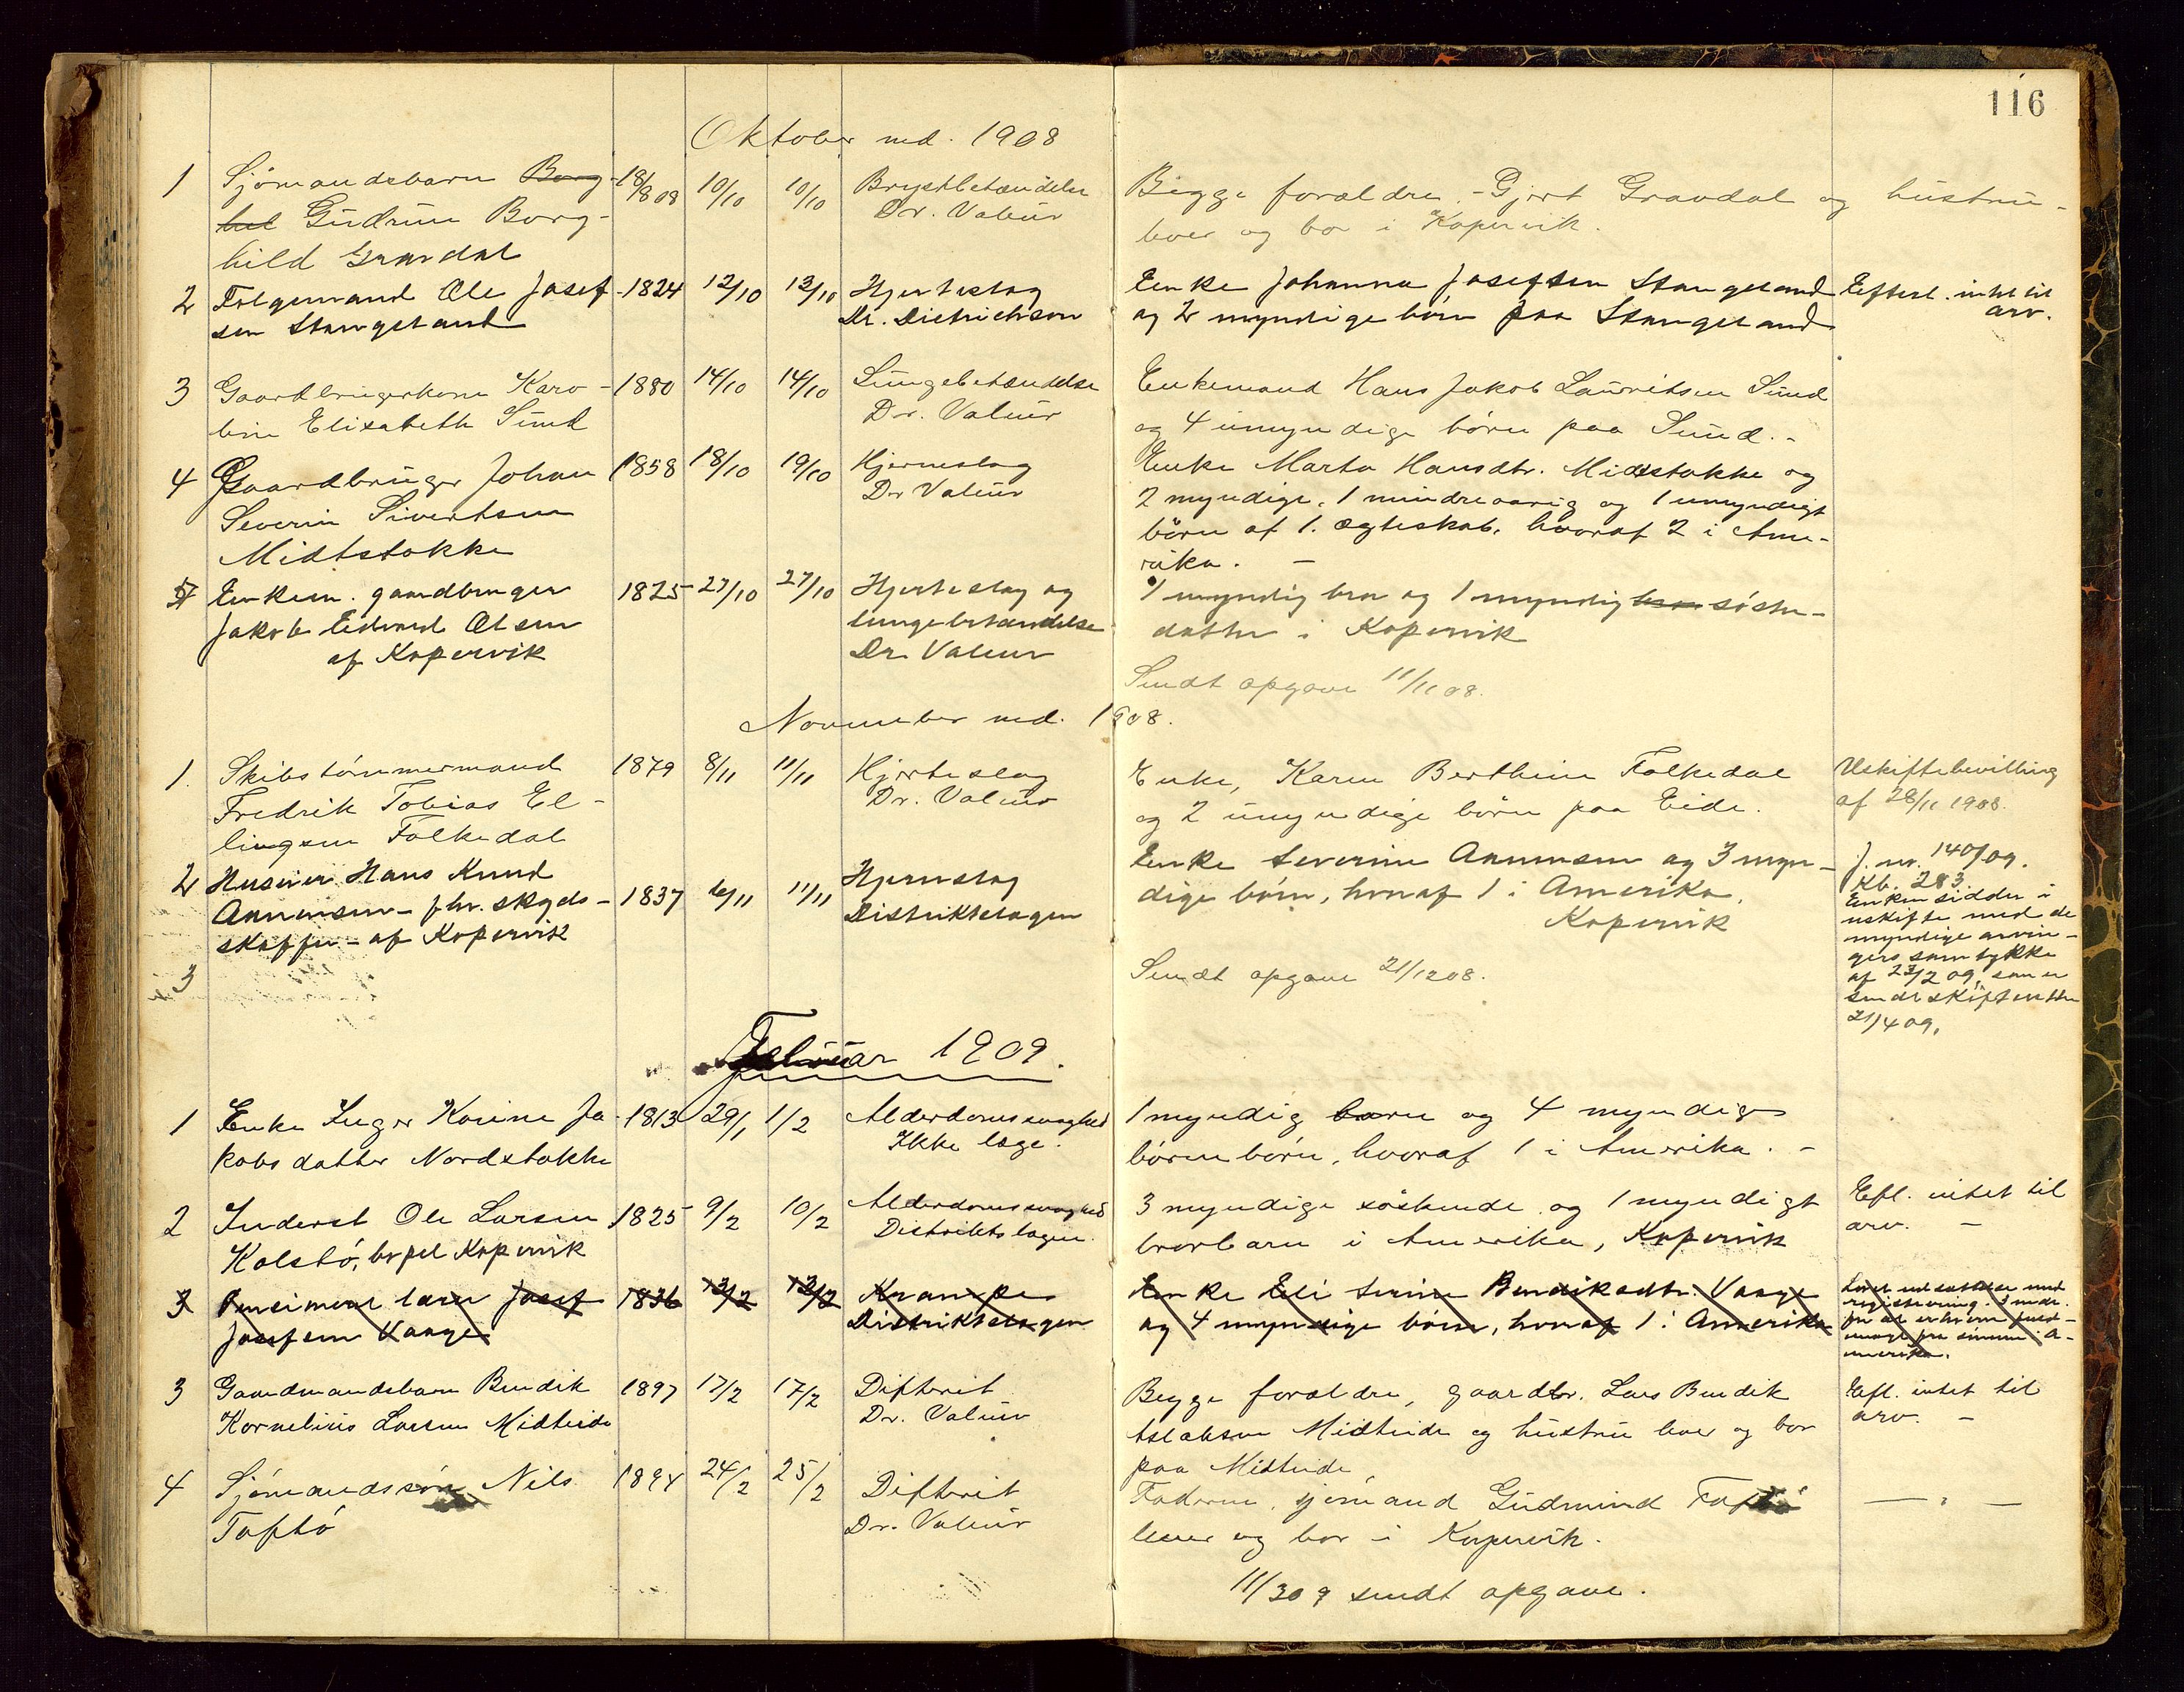 116
Oktober md. 1908
1 Sjømandsbarn Borg- 18/8 08 10/10 10/10 Brystbetændelse
hel Gudrun Borg- Dr. Valeur
hild Gravdal
Begge forældre, - Gjert Gravdal og hustru -
lever og bor i Kopervik.
2 Folgemand Ole Josef- 1824 12/10 13/10 Hjerteslag
sen Stangeland Dr. Dietrichson
Enke Johanna Josefsen Stangeland
og 2 myndige børn paa Stangeland
Efterl. intet til
arv.
3 Gaardbrugerkone Karo- 1880 14/10 14/10 Lungebetændelse
line Elisabeth Sund Dr. Valeur
Enkemand Hans Jakob Lauritsen Sund
og 4 umyndige børn paa Sund. -
4 Gaardbruger Johan 1858 18/10 19/10 Hjerneslag
Severin Sivertsen Dr Valeur
Midtstokke
Enke Marta Hansdtr. Midtstokke og
2 myndige, 1 mindreaarig og 1 umyndigt
børn af 1. ægteskab, hvoraf 2 i Ame-
rika. -
5 Enkem. gaardbruger 1825 27/10 27/10 Hjerteslag og
Jakob Edvard Olsen lungebetændelse
af Kopervik Dr. Valeur
1 myndig bror og 1 myndig bror søster-
datter i Kopervik
Sendt opgave 11/11 08.
November md. 1908.
1. Skibstømmermand 1879 8/11 11/11 Hjerteslag
Fredrik Tobias El- Dr. Valeur
lingsen Folkedal
Enke, Karen Berthine Folkedal
og 2 umyndige børn paa Eide.
Uskiftebevilling
af 28/11 1908.
2 Huseier Hans Knud Hjerneslag
Annensen - fhv. skyds- 1837 6/11 11/11 Distriktslægen
skaffer - af Kopervik
Enke Severine Annensen og 3 myn-
dige børn, hvoraf 1 i Amerika.
Kopervik
J. nr. 140/09.
Kb. 283
Enken sidder i
uskifte med de
myndige arvin-
gers samtykke
af 23/2 09, som er
sendt skifteretten
21/4 09.
3
Sendt opgave 21/12 08.
Februar 1909.
1 Enke Inger Karine Ja- 1813 29/1 1/2 Alderdomssvaghed
kobsdatter Nordstokke Ikke læge.
1 myndig barn og 4 myndige
børnebørn, hvoraf 1 i Amerika. -
2 Inderst Ole Larsen 1825 9/2 10/2 Alderdomssvaghed
Kolstø, bopel Kopervik Distriktslægen.
3 myndige søskende og 1 myndigt
brorbarn i Amerika, Kopervik
Efl. intet til
arv. -
3 Pensioneret lærer Josef 1836 13/2 13/2 Krampe
Josefsen Vaage Distriktslægen
Enke Eli Serine Bendiksdtr. Vaage
og 4 myndige børn, hvoraf 1 i Amerika
3 Gaardmandsbarn Bendik 1897 17/2 17/2 Difterit
Kornelius Larsen Midteide Dr. Valeur
Begge forældre, gaardbr. Lars Bendik
Aslaksen Midteide og hustru lever og bor
paa Midteide
Efl. intet til
arv. -
4 Sjømandssøn Nils 1894 24/2 25/2 Difterit
Toftø Dr. Valeur
Faderen, sjømand Gudmund Toftø
lever og bor i Kopervik.
— " —
11/3 09 sendt opgave.